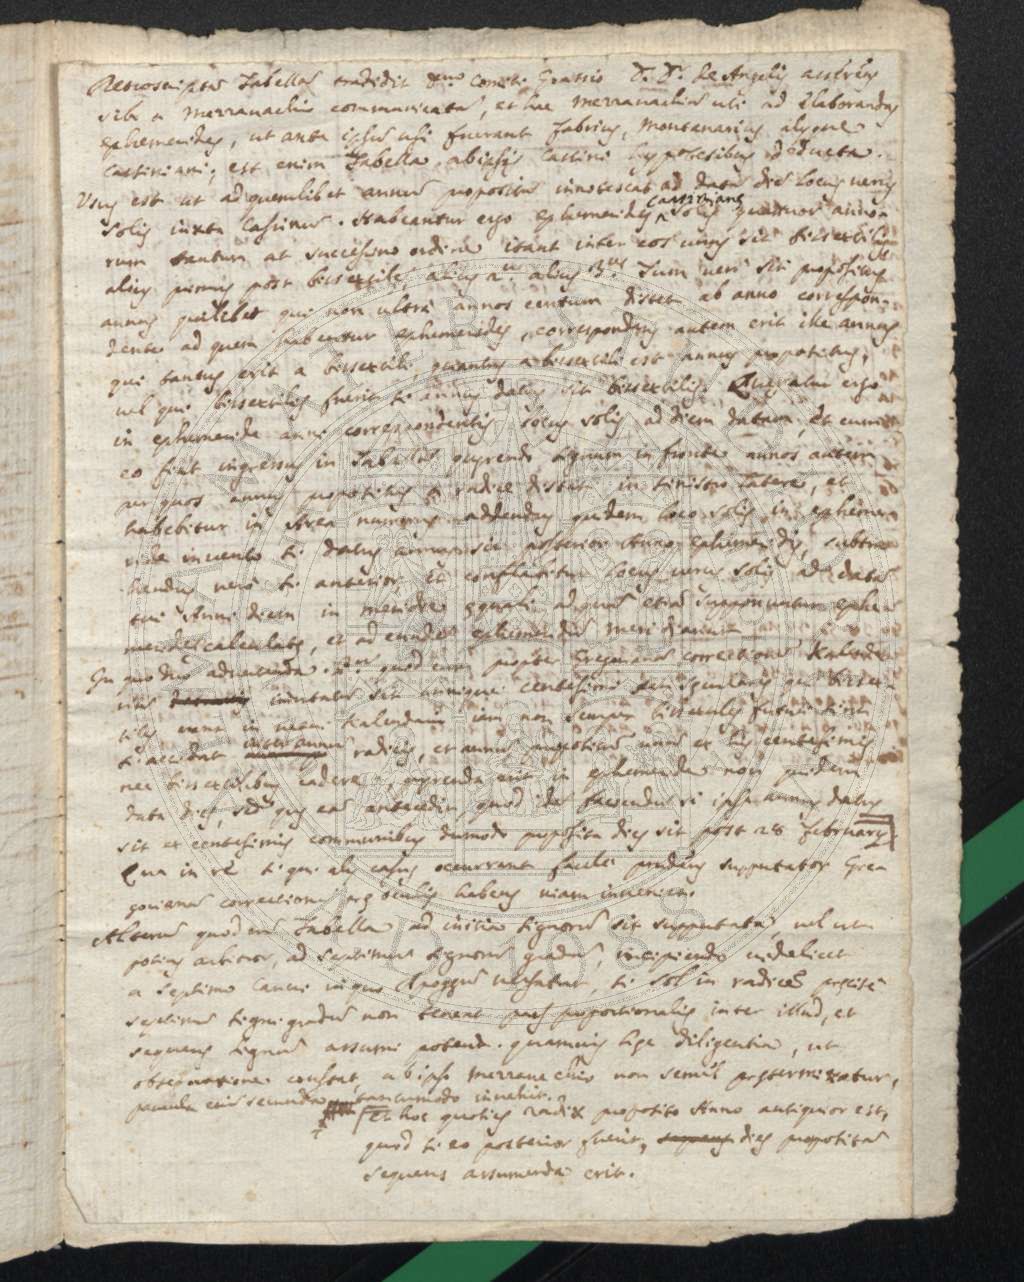 Retroscriptam Tabellam tradidit Dno Comiti Grassio D. Dr. De Angelis asserens
sibi a Merzavachio communicatam, et hac Merzavachium uti ad elaborandas
ephemerides, ut ante ipsum usi fuerant Fabrius, Montanarius, aliique
Cassiniani; est enim Tabella ab ipsis Cassini hypotesibus deducta.
Usus est ut ad quemlibet annum propositum innotescat ad datam diem locus verus
Solis iuxta Casinum. Habeantur ergo ephemerides Cassinianae Solis quatuor anno-
rum tantum at successivo ordine itaut inter eos unus sit bissextilis
alius primus post bissextilem alius 2us alius 3us. Tum vero sit propositus
annus quilibet qui non ultra annos centum distet ab anno correspon-
dente ad quem habentur ephemerides, correspondens autem erit ille annus
qui tantus erit a bissextili quantus a bissextili est annus propositus,
vel qui bissextilis fuerit si annus datus sit bissextilis. Queratur ergo
in ephemeride anni correspondentis locus solis ad diem datam, et cum
eo fiat ingressus in Tabellam querendo signum in fronte annos autem
per quos annus propositus a radice distat in sinistro latere, et
habebitur in Area numerus addendus quidem loco solis in epheme-
ride invento si datus annus sit posterior Anno ephemeridis, subtra-
hendus vero si anterior, et conflabitur locus verus solis ad datam
sui Anni diem in meridie equali ad quem etiam supponuntur ephe
merides calculatae, et ad eundem ephemeridum meridianum
In quo duo advertenda. Pum quod cum propter Gregorianam correctionem Kalenda
rii immutatum sit nempe centesimi seculares qui bissex-
tiles erant in veteri Kalendario iam non semper bissextiles futuri sint
si accidat inter annum radicis, et annum propositum unum ex his centesimis
nec bissextilibus cadere, querenda erit in ephemeride non quidem
data dies, sed quae eam antecedit, quod idem faciendum si ipse annus datus
sit ex centesimis communibus dummodo proposita dies sit post 28 februarii.
Qua in re si qui alii casus occurrant facile prudens supputator Gre
gorianam correctionem prae oculis habens viam inveniet.
Alterum quod cum Tabella ad initia signorum sit supputata, vel ut
potius arbitror, ad septimum signorum gradum, incipiendo videlicet
a septimo Cancri in quo Apogeum versatur, si Sol in radice praecise
septimum signi gradum non teneat pars proportionalis inter illud, et
sequens signum assumi poterit. quamvis hec diligentia, ut
observatione constat, ab ipso Merzavachio non semel praetermittatur,
paucula enim secunda tantummodo invehit.
Et hoc quoties radix proposito Anno antiquior est,
quod si eo posterior fuerit, dies propositam
sequens assumenda erit.